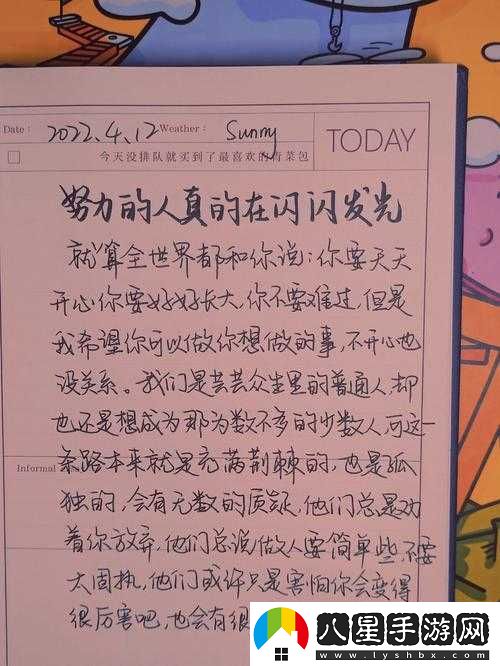 Date: 2022.4.12 Weather: Sunny
TODAY
今天没排队就买到了最喜欢的青菜包
努力的人真的在闪闪发光
就算全世界都和你说:你要天天
开心你要好好长大,你不要难过,但是
我希望你可以做你想做的事,不开心也
没关系。我们是芸芸众生里的普通人,却
也还是想成为那为数不多的少数人,可这一
条路本来就是充满荆棘的,也是孤
Informal
独的,会有无数的质疑,他们总是劝
着你放弃,他们总说做人要简单些,不要
太固执,他们或许只是害怕你会变得
很厉害吧,也会有很
八星手游网
www.lyshbx.com